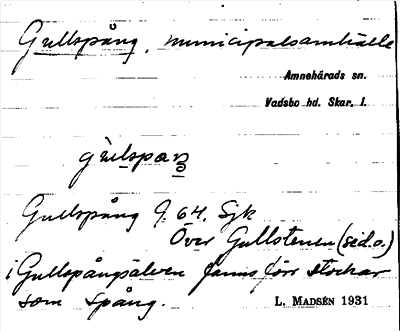 Gullspång, municipalsamhälle
Amnehärads sn.
Vadsbo hd. Skar. l.
Gullspång J. 64. Sjk
Över Gullstenen (sid.o.)
i Gullspångsälven fanns förr stockar
som spång.
L. MADSÉN 1931